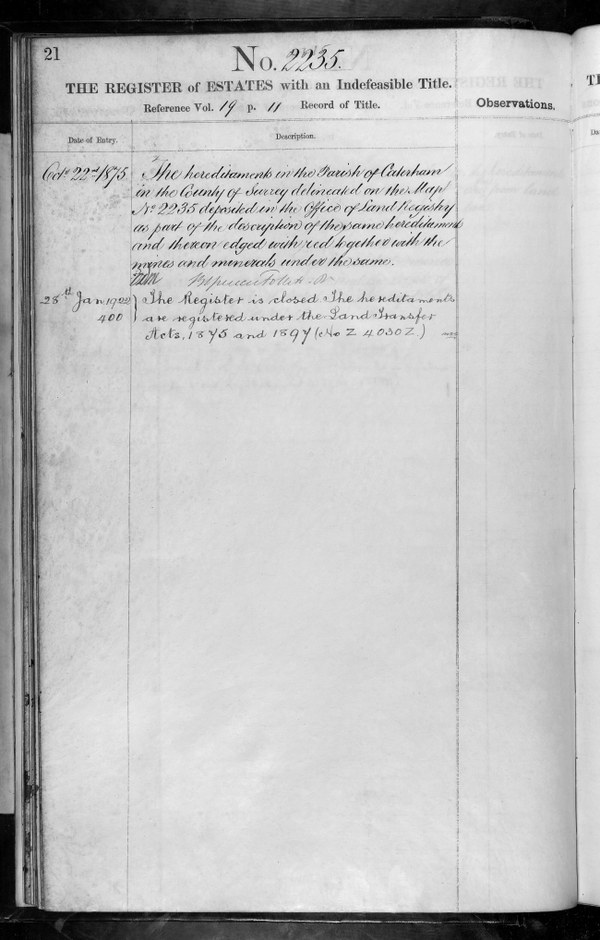 21
No. 2235.
THE REGISTER of ESTATES with an Indefeasible Title.
Reference Vol. 19 p. 11 Record of Title.
Observations.
Date of Entry.
Description.
Octr 22nd 1875
The hereditaments in the Parish of Caterham
in the County of Surrey delineated on the Map
No 2235 deposited in the Office of Land Registry
as part of the description of the same hereditaments
and thereon edged with red together with the
mines and minerals under the same.
28th Jan 1922
400
The Register is closed The hereditaments
are registered under the Land Transfer
Acts, 1875 and 1897 (No Z 4030Z.)